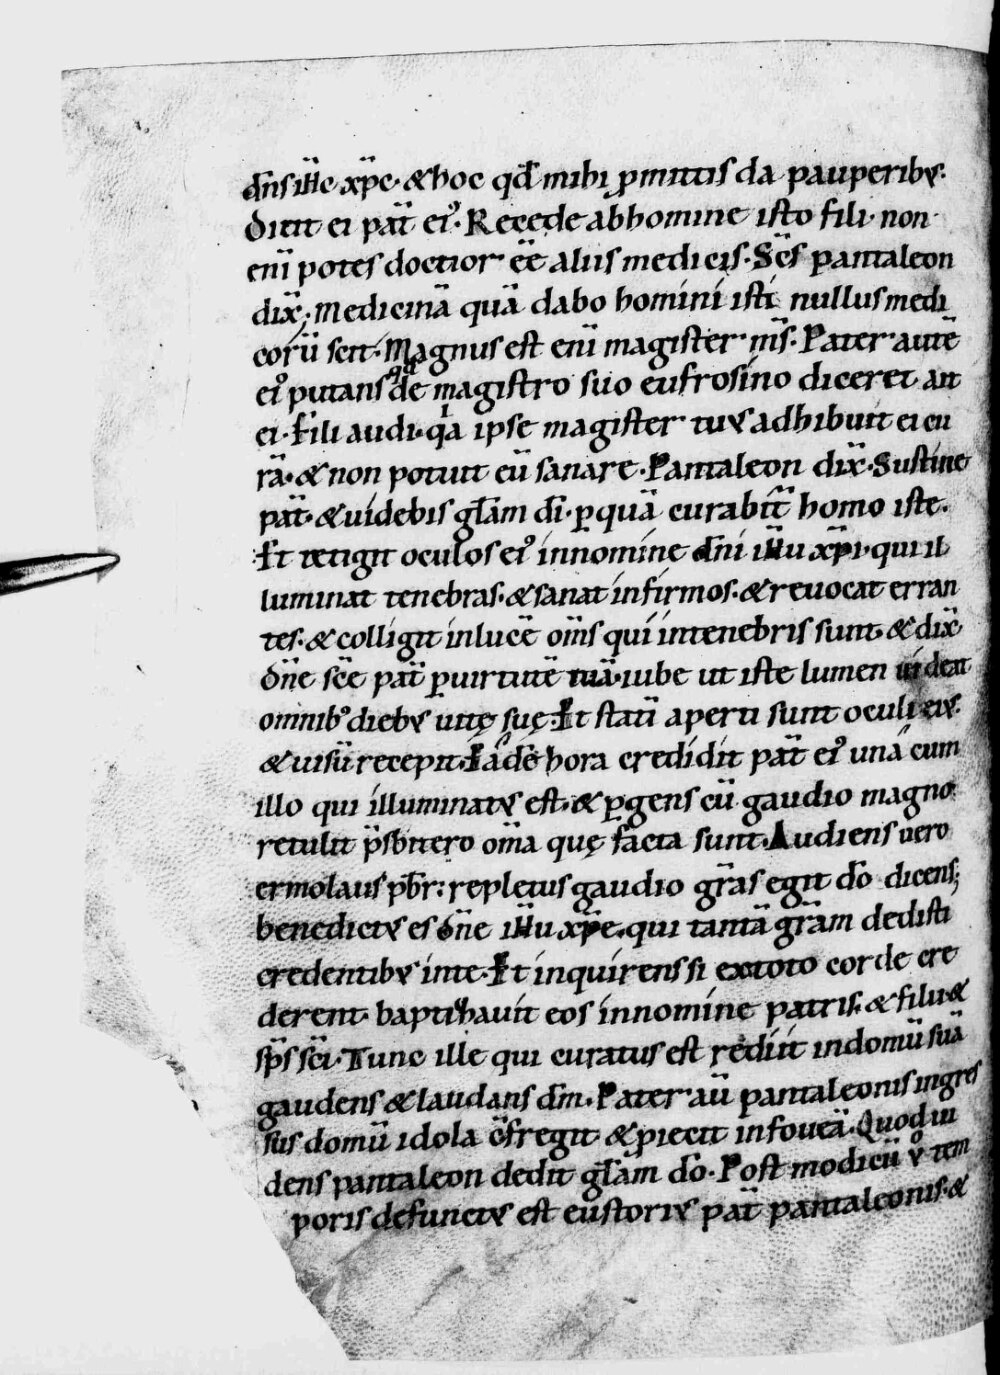 dn̄s ih̄e xp̄e· & hoc qd̄ mihi ꝓmittis da pauperibꝰ·
Dicit ei pat̄ eiꝰ· Recede ab homine isto fili· non
eni̅ potes doctior ee̅ aliis medicis· Sc̄s pantaleon
dix̄· medicina̅ qua̅ dabo homini isti nullus medi
coru̅ scit· Magnus est eni̅ magister m̅s· Pater aute̅
eiꝰ putans qđ de magistro suo eufrosino diceret ait
ei· Fili audi· qa ipse magister tuꝰ adhibuit ei cu
ra̅· & non potuit eu̅ sanare· Pantaleon dix̄· Sustine
pat̄· & videbis gl̄am di̅· ꝑ qua̅ curabit̄ homo iste·
Et tetigit oculos eiꝰ in nomine dn̄i ih̄u xp̄i· qui il
luminat tenebras· & sanat infirmos· & revocat erran
tes· & colligit in luce̅ om̄s qui in tenebris sunt· & dix̄
Dn̄e sc̄e pat̄ ꝑ uirtute̅ tua̅· iube ut iste lumen uideat
omnibꝰ diebꝰ uitę suę· Et stati̅ aperti sunt oculi eiꝰ·
& uisu̅ recepit· Ea de̅ hora credidit pat̄ eiꝰ una cum
illo qui illuminatꝰ est· & ꝑgens cu̅ gaudio magno
retulit p̄sbitero om̄a quę facta sunt· Audiens uero
ermolaus pb̄r: repletus gaudio gr̄as egit dō dicens;
benedictꝰ es dn̄e ih̄u xp̄e· qui tanta̅ gr̄am dedisti
credentibꝰ in te· Et inquirens si ex toto corde cre
derent· baptizauit eos in nomine patris· & filii· &
sp̄s sc̄i· Tunc ille qui curatus est rediit in domu̅ sua̅
gaudens & laudans dm̄· Pater au̅ pantaleonis ingres
sus domu̅ idola c̅fregit & ꝓiecit in fouea̅· Quod ui
dens pantaleon dedit gl̄am dō· Post modicu̅ ꝟo tem
poris defunctꝰ est eustoriꝰ pat̄ pantaleonis· &